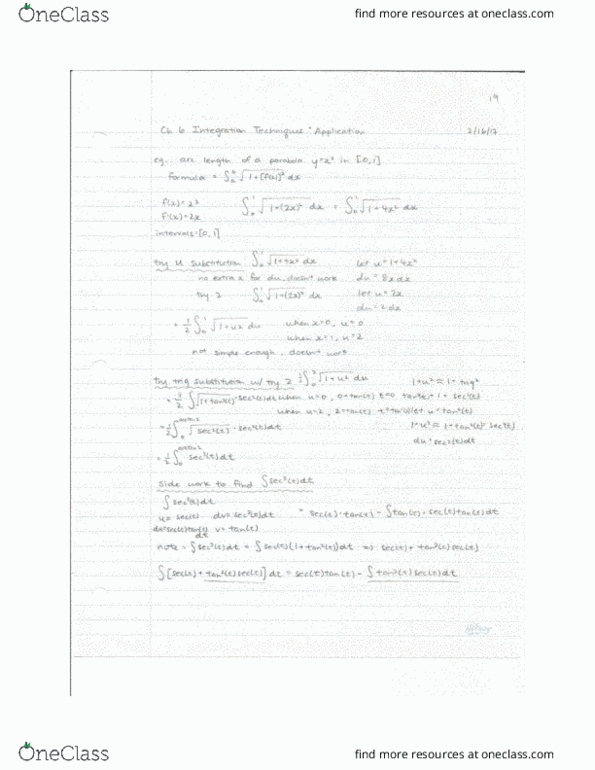 OneClass
find more resources at oneclass.com
19
Ch 6 Integration Techniques + Application 2/16/17
eg. arc length of a parabola y=x² in [0,1]
formula = ∫ₐᵇ √1+[f'(x)]² dx
f(x)=x² ∫₀¹ √1+(2x)² dx = ∫₀¹ √1+4x² dx
f'(x)=2x
intervals:[0,1]
try u substitution ∫₀¹ √1+4x² dx let u=1+4x²
no extra x for du, doesnt work du = 8xdx
try 2 ∫₀¹ √1+(2x)² dx let u=2x
du=2dx
= ½ ∫₀ √1+u² du when x=0, u=0
when x=1, u=2
not simple enough, doesnt work
try trig substitution w/ try 2 ½∫₀² √1+u² du
= ½ ∫ √1+tan²(t) · sec²(t)dt when u=0, 0=tan(t) t=0 tan²t+1=sec²(t)
when u=2, 2=tan(t) let u=tan(t)
= ½ ∫₀ √sec²(t) · sec²(t)dt
du=sec²(t)dt
= ½ ∫₀ sec³(t)dt
side work to find ∫sec³(t)dt
∫sec³(t)dt
u=sec(t) dv=sec²(t)dt = sec(t)·tan(t) - ∫tan(t)·sec(t)tan(t)dt
du=sec(t)tan(t)dt v=tan(t)
note = ∫sec³(t)dt = ∫sec(t)(1+tan²(t))dt ⇒ sec(t)+tan²(t)sec(t)
∫[sec(t)+tan²(t)sec(t)]dt = sec(t)tan(t) - ∫tan²(t)sec(t)dt
OneClass
find more resources at oneclass.com